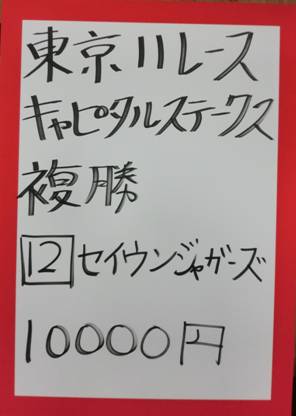 東京11レース
キャピタルステークス
複勝
12 セイウンジャガーズ
10000円